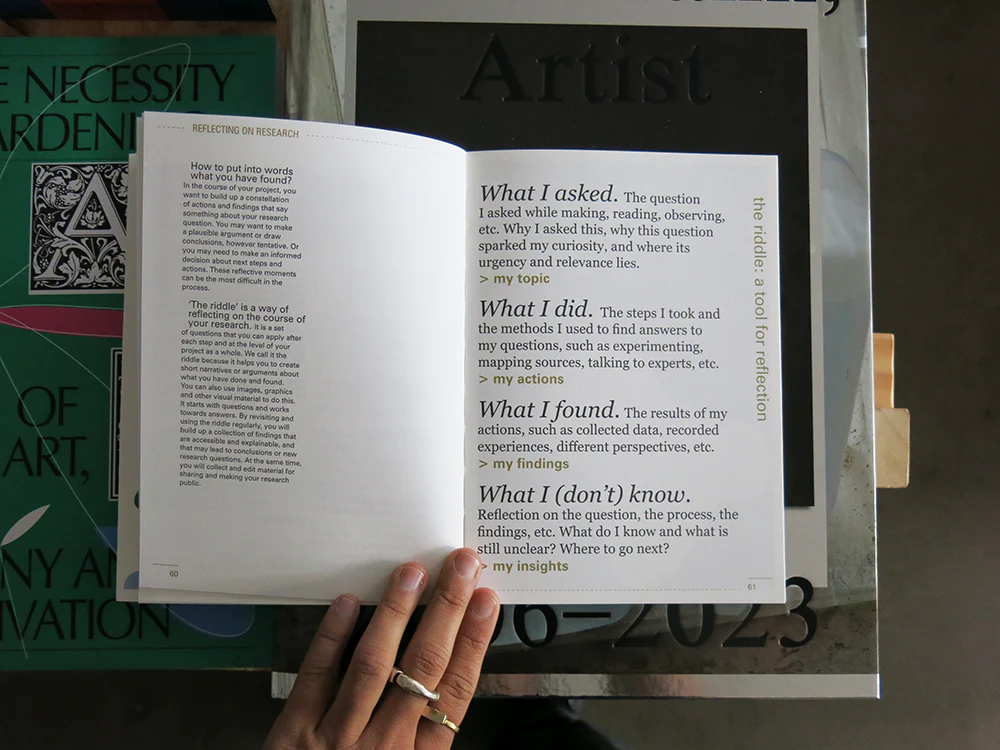 E NECESSITY
ARDENI
A
OF
ART,
NY AN
IVATION
Artist
06–2023
REFLECTING ON RESEARCH
How to put into words
what you have found?
In the course of your project, you
want to build up a constellation
of actions and findings that say
something about your research
question. You may want to make
a plausible argument or draw
conclusions, however tentative. Or
you may need to make an informed
decision about next steps and
actions. These reflective moments
can be the most difficult in the
process.
'The riddle' is a way of
reflecting on the course of
your research. It is a set
of questions that you can apply after
each step and at the level of your
project as a whole. We call it the
riddle because it helps you to create
short narratives or arguments about
what you have done and found.
You can also use images, graphics
and other visual material to do this.
It starts with questions and works
towards answers. By revisiting and
using the riddle regularly, you will
build up a collection of findings that
are accessible and explainable, and
that may lead to conclusions or new
research questions. At the same time,
you will collect and edit material for
sharing and making your research
public.
60
What I asked. The question
I asked while making, reading, observing,
etc. Why I asked this, why this question
sparked my curiosity, and where its
urgency and relevance lies.
> my topic
What I did. The steps I took and
the methods I used to find answers to
my questions, such as experimenting,
mapping sources, talking to experts, etc.
> my actions
What I found. The results of my
actions, such as collected data, recorded
experiences, different perspectives, etc.
> my findings
What I (don't) know.
Reflection on the question, the process, the
findings, etc. What do I know and what is
still unclear? Where to go next?
> my insights
the riddle: a tool for reflection
61